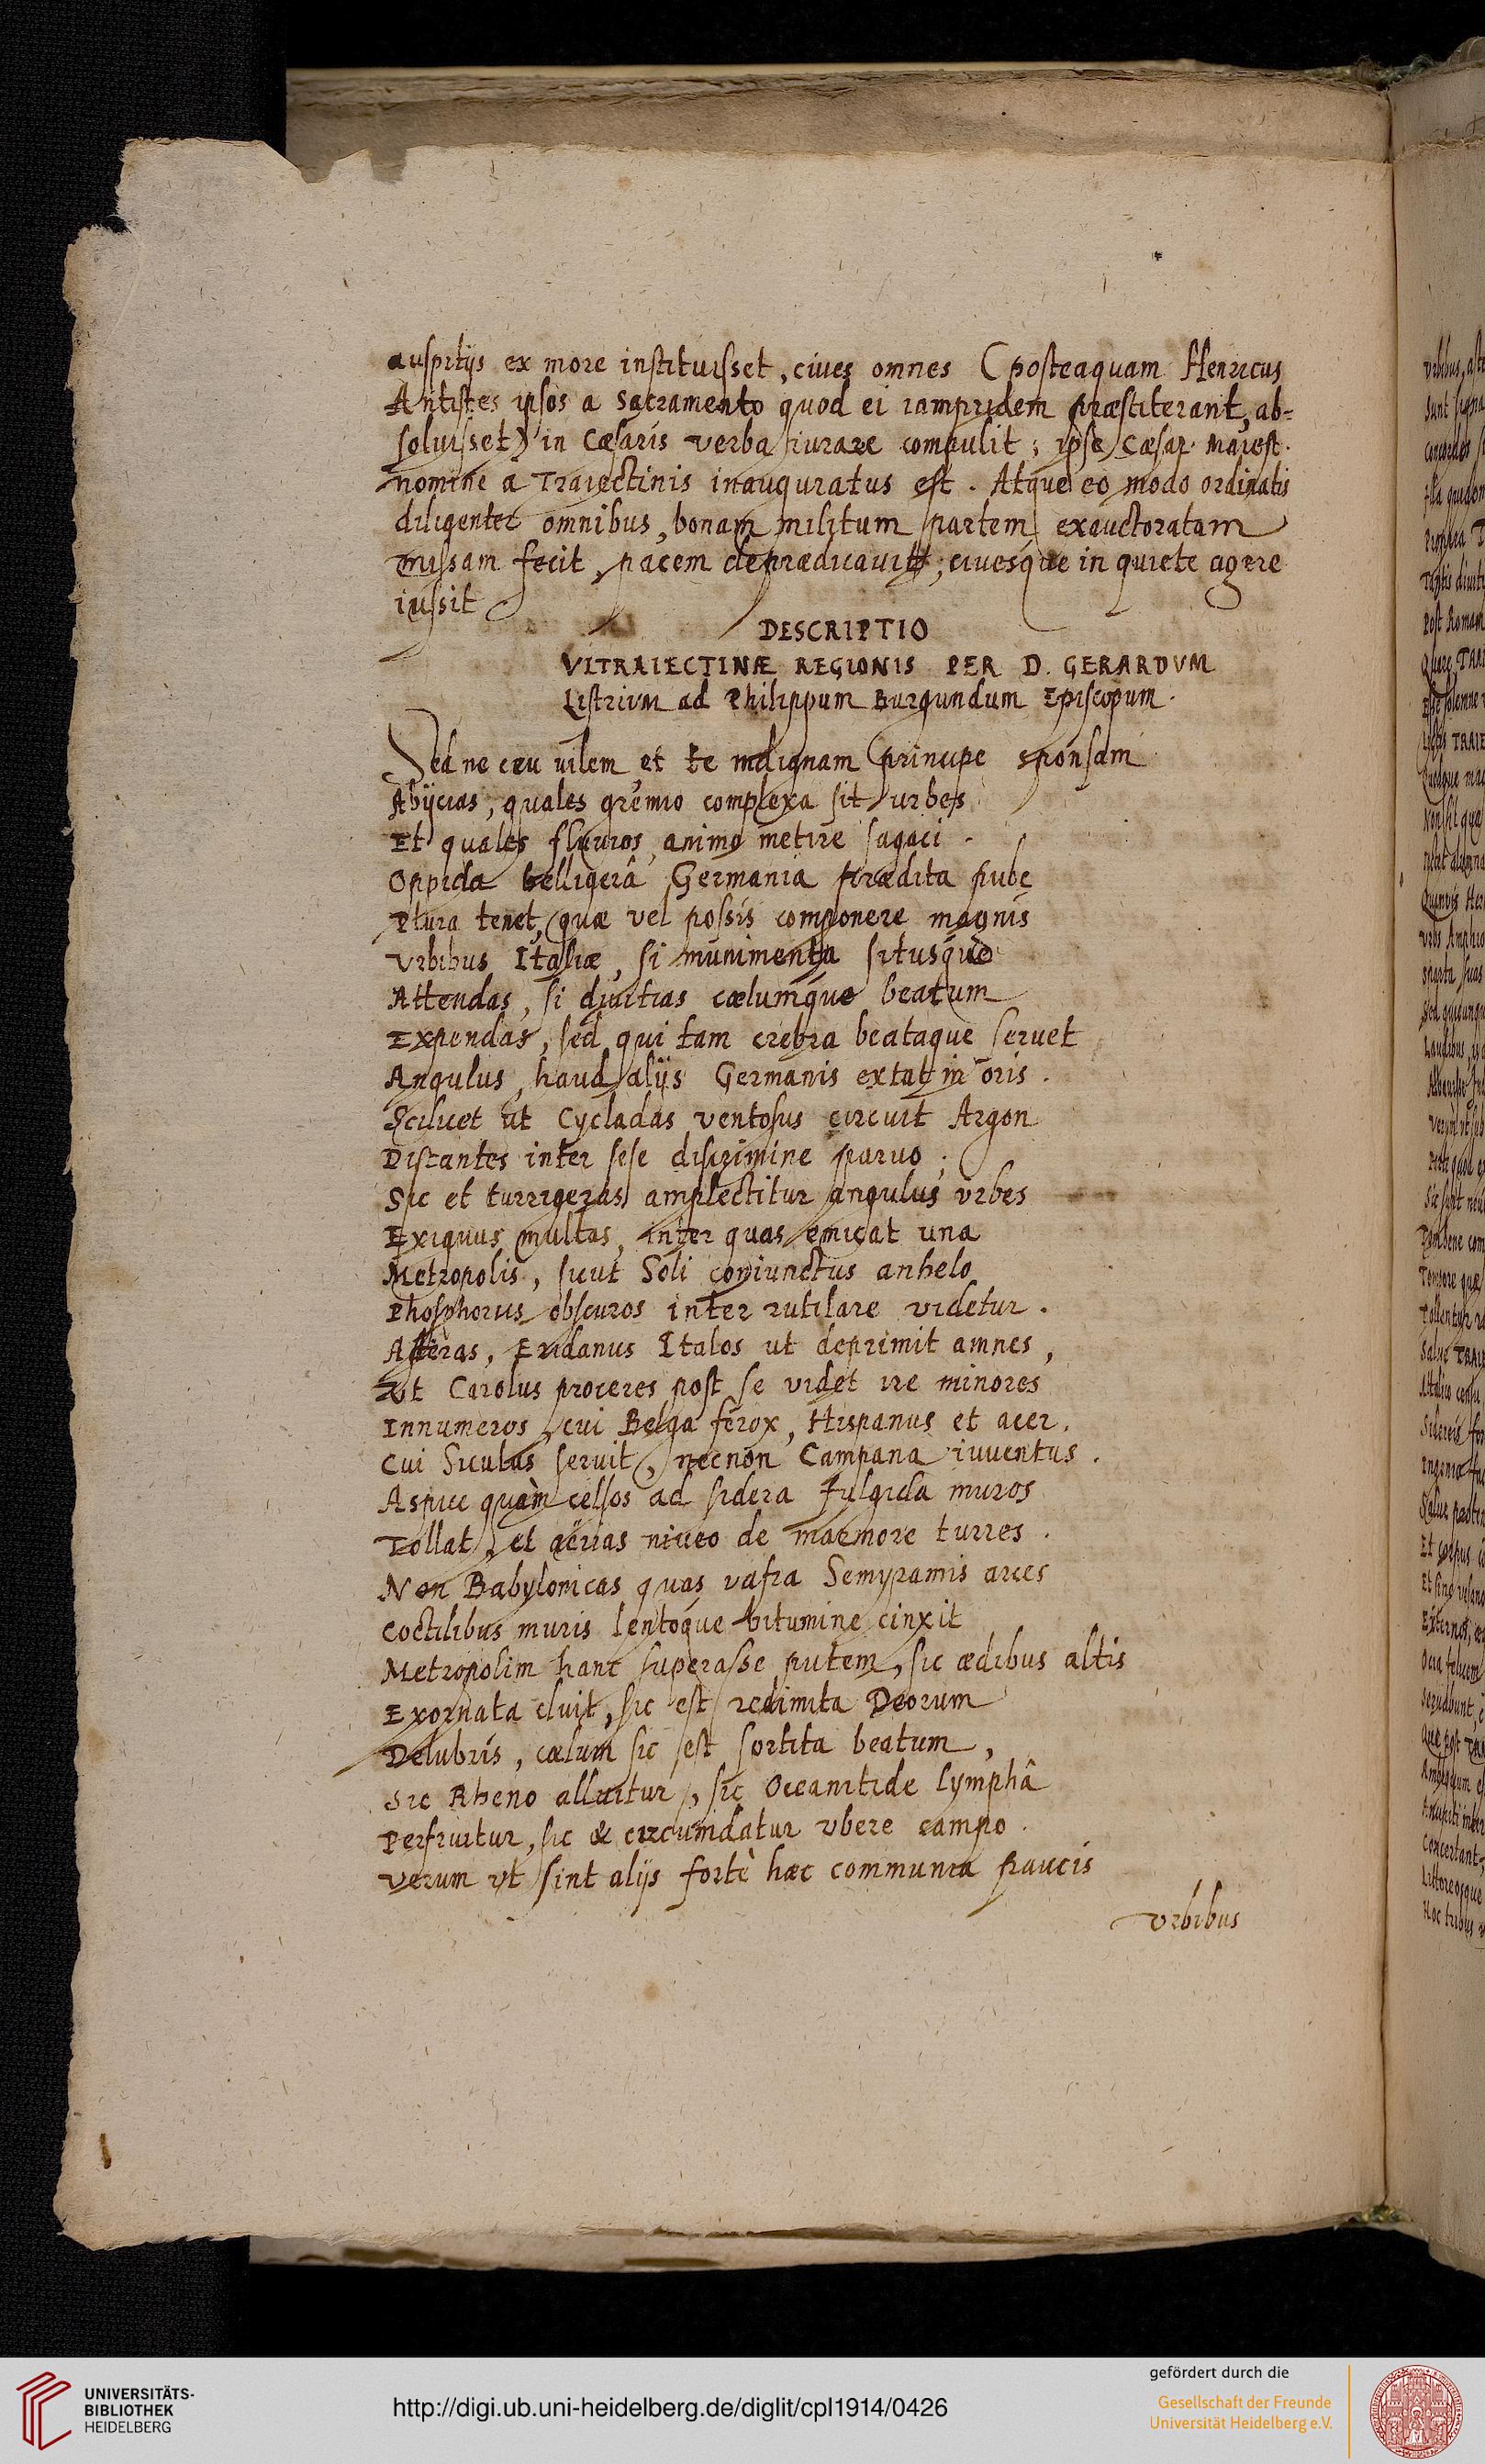 auspitijs ex more instituisset, ciues omnes (posteaquam Henricus
Antistes ipsos a sacramento quod ei iampridem præstiterant, ab=
soluisset) in Cæsaris verba iurare compulit; ipse Cæsar. Maiest.
nomine a Traiectinis inauguratus est. Atque eo modo ordinatis
diligenter omnibus, bonam militum partem exauctoratam
missam fecit, pacem deprædicauit; ciuesque in quiete agere
iussit
DESCRIPTIO
VLTRAIECTINÆ REGIONIS PER D. GERARDVM
Listrium ad Philippum Burgundum Episcopum.
Sed ne ceu uilem et te indignam principe sponsam
Abijcias, quales gremio complexa sit urbes
Et quales fluuios, animo metire sagaci.
Oppida belligerâ Germania prædita pube
Plura tenet, quæ vel possis componere magnis
Vrbibus Italiæ, si munimenta situsque
Attendas, si diuitias cælumque beatum
Expendas, sed qui tam crebra beataque seruet
Angulus, haud alijs Germanis extat in oris.
Scilicet ut Cycladas ventosus circuit Argon
Distantes inter sese discrimine paruo;
Sic et turrigeras amplectitur angulus vrbes
Exiguus multas, inter quas emicat una
Metropolis, sicut Soli coniunctus anhelo
Phosphorus obscuros inter rutilare videtur.
Asteras, Eridanus Italos ut deprimit amnes,
Vt Carolus proceres post se videt ire minores
Innumeros, cui Belga ferox, Hispanus et acer.
Cui Siculus seruit, necnon Campana iuuentus.
Aspice quàm celsos ad sidera fulgida muros
Tollat, et aërias niueo de marmore turres.
Non Babylonicas quas vafra Semyramis arces
Coctilibus muris lentoque bitumine cinxit
Metropolim hanc superasse putem, sic ædibus altis
Exornata cluit, sic est redimita Deorum
Delubris, cælum sic est sortita beatum,
Sic Rheno alluitur, sic Oceanitide lymphâ
Perfruitur, sic & circumdatur vbere campo.
Verum vt sint alijs fortè hæc communia paucis
Vrbibus
UNIVERSITÄTS-
BIBLIOTHEK
HEIDELBERG
http://digi.ub.uni-heidelberg.de/diglit/cpl1914/0426
gefördert durch die
Gesellschaft der Freunde
Universität Heidelberg e.V.